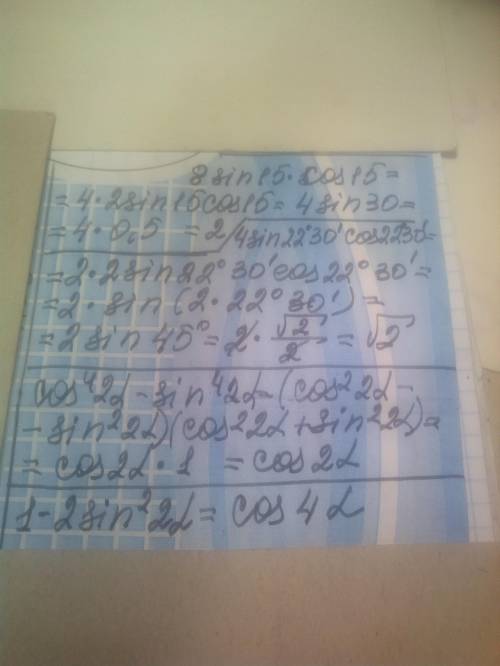 8 sin15·cos15=
=4·2sin15cos15=4sin30=
=4·0,5 =2
4sin22°30'cos22°30'=
=2·2sin22°30'cos22°30'=
=2·sin(2·22°30')=
=2sin45°=2·√2/2=√2
cos⁴2α-sin⁴2α=(cos²2α-
-sin²2α)(cos²2α+sin²2α)=
=cos2α·1 =cos2α
1-2sin²2α=cos4α